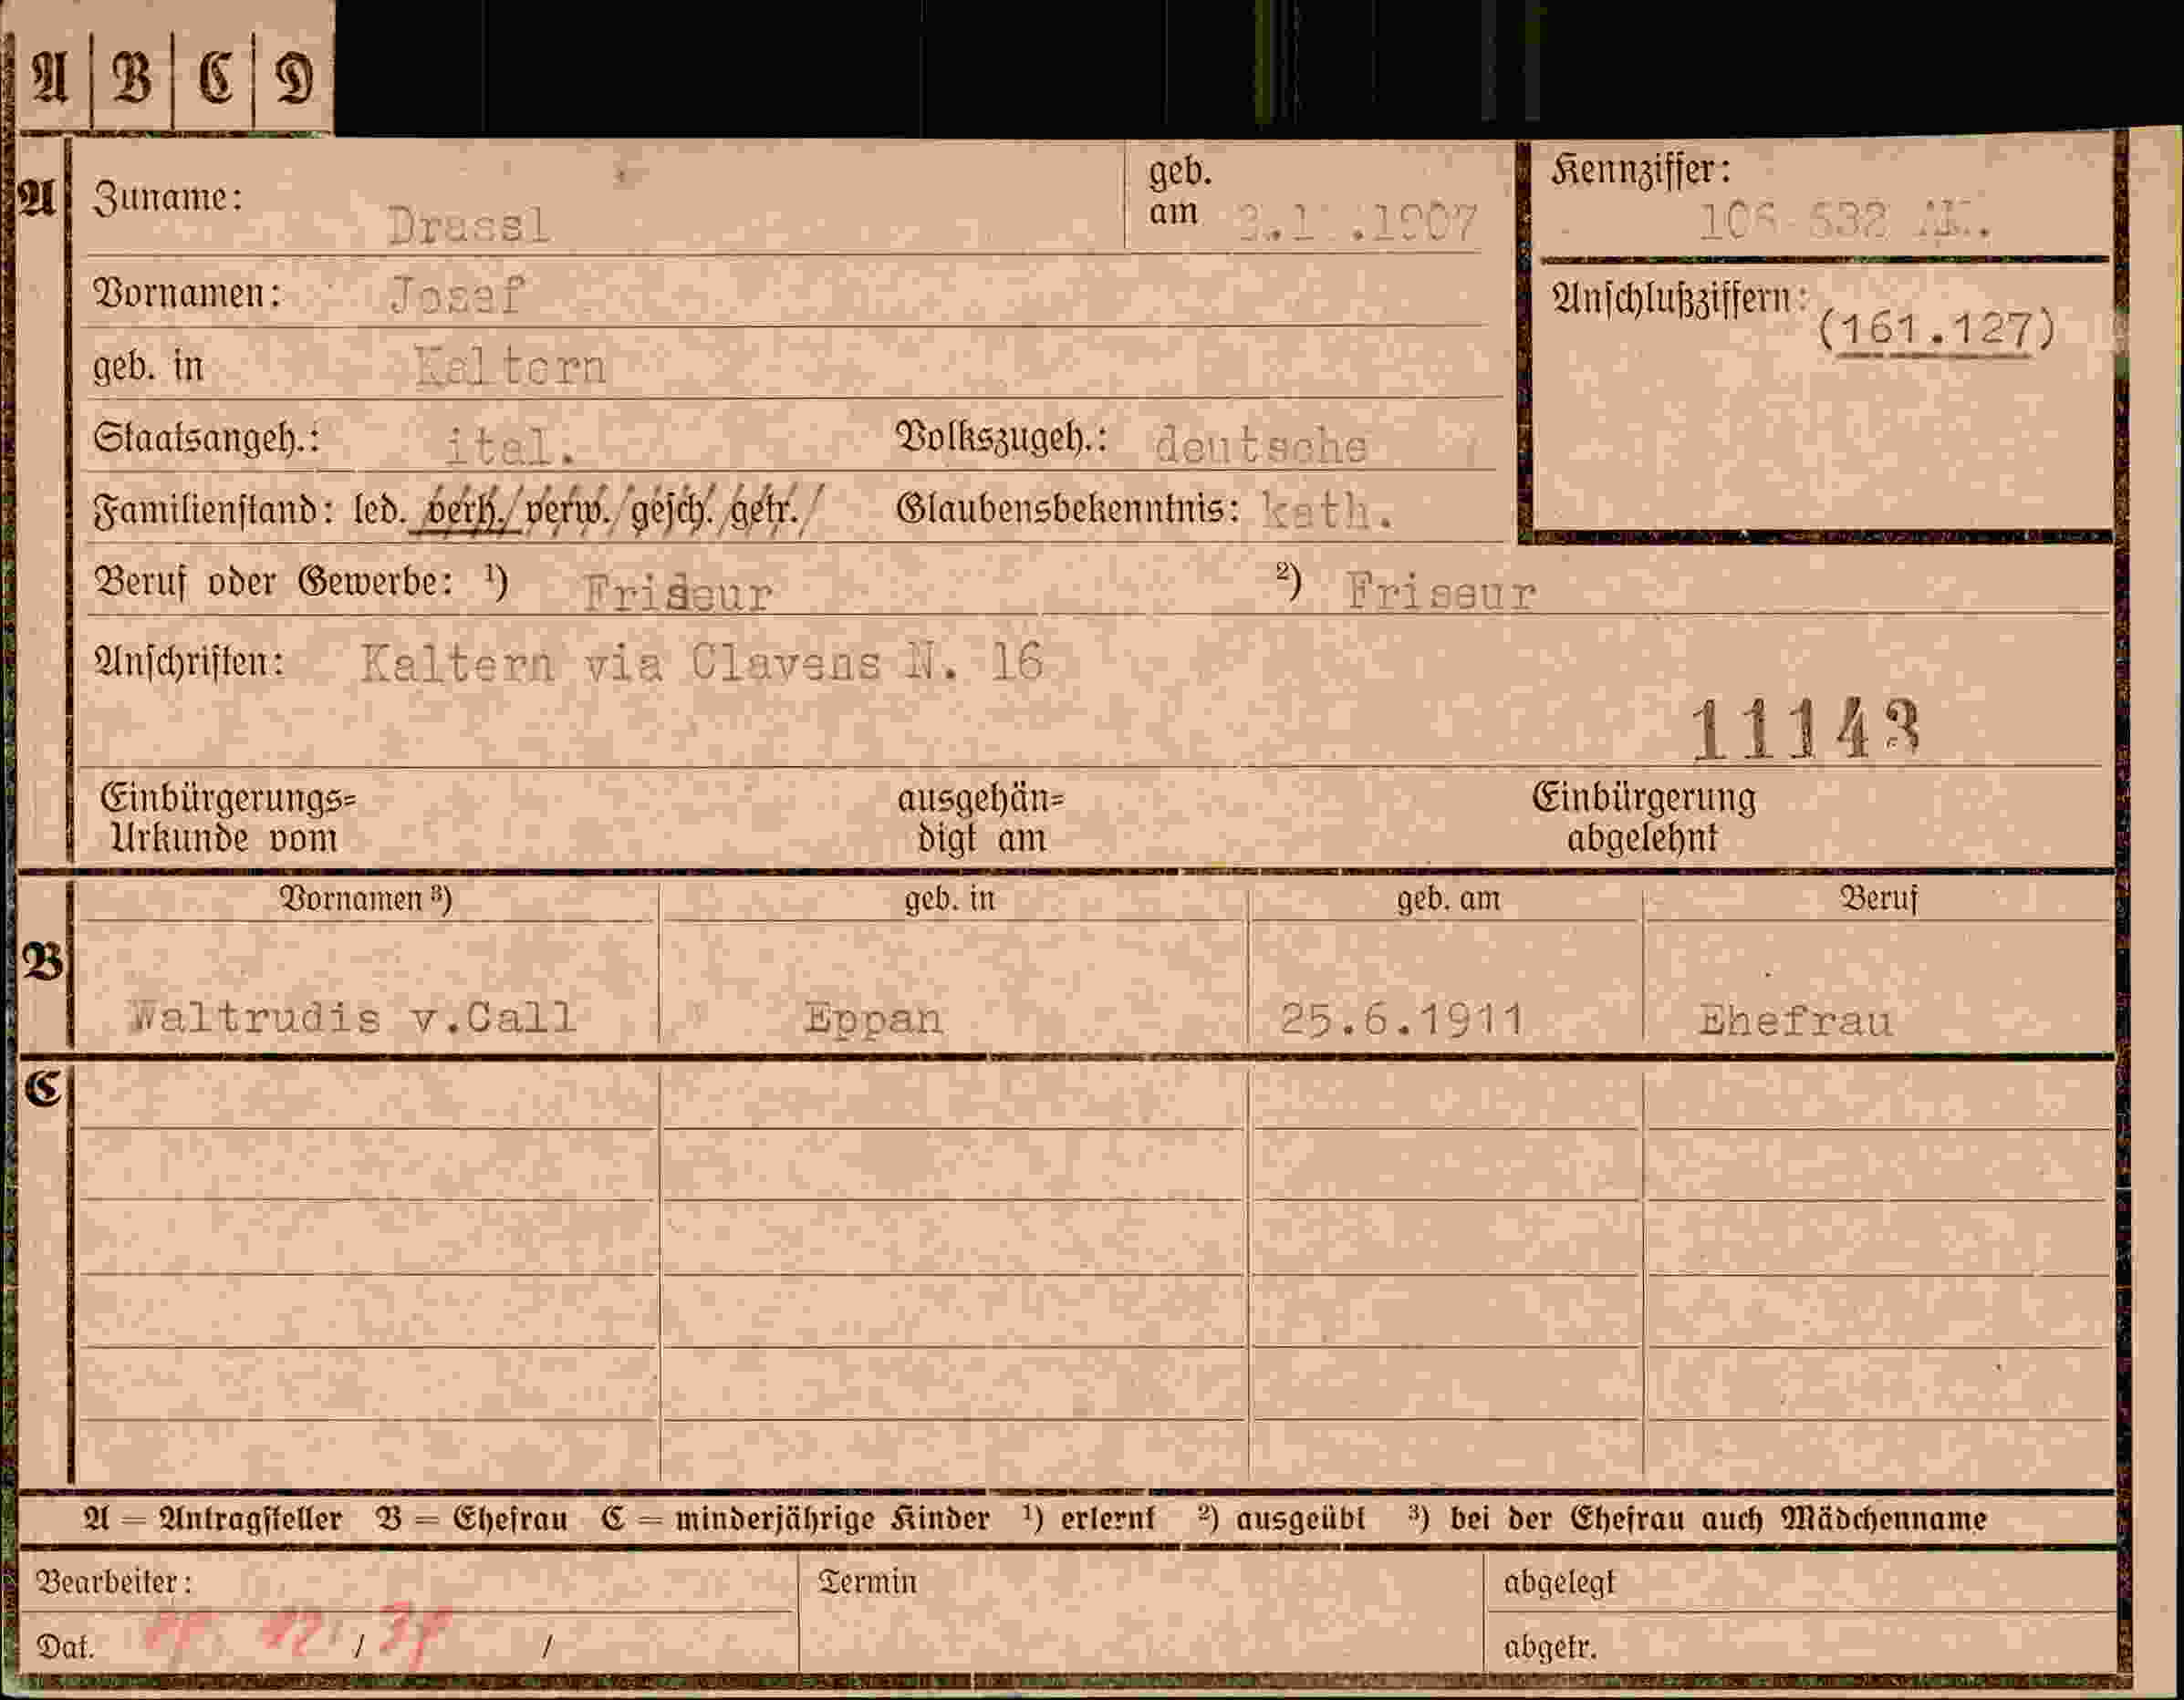 A | B | C | D
A
Zuname: Drassl
geb. am .1907
Kennziffer: 532
Vornamen: Josef
Anschlußziffern: (161.127)
geb. in Kaltern
Staatsangeh.: ital. Volkszugeh.: deutsche
Familienstand: led. verh./verw./gesch./getr./ Glaubensbekenntnis: kath.
Beruf oder Gewerbe: ¹) Friseur ²) Friseur
Anschriften: Kaltern via Clavens N. 16
11143
Einbürgerungs= ausgehän= Einbürgerung
Urkunde vom digt am abgelehnt
Vornamen ³) geb. in geb. am Beruf
B
Waltrudis v.Call Eppan 25.6.1911 Ehefrau
C
A = Antragsteller B = Ehefrau C = minderjährige Kinder ¹) erlernt ²) ausgeübt ³) bei der Ehefrau auch Mädchenname
Bearbeiter: Termin abgelegt
Dat. / / abgetr.